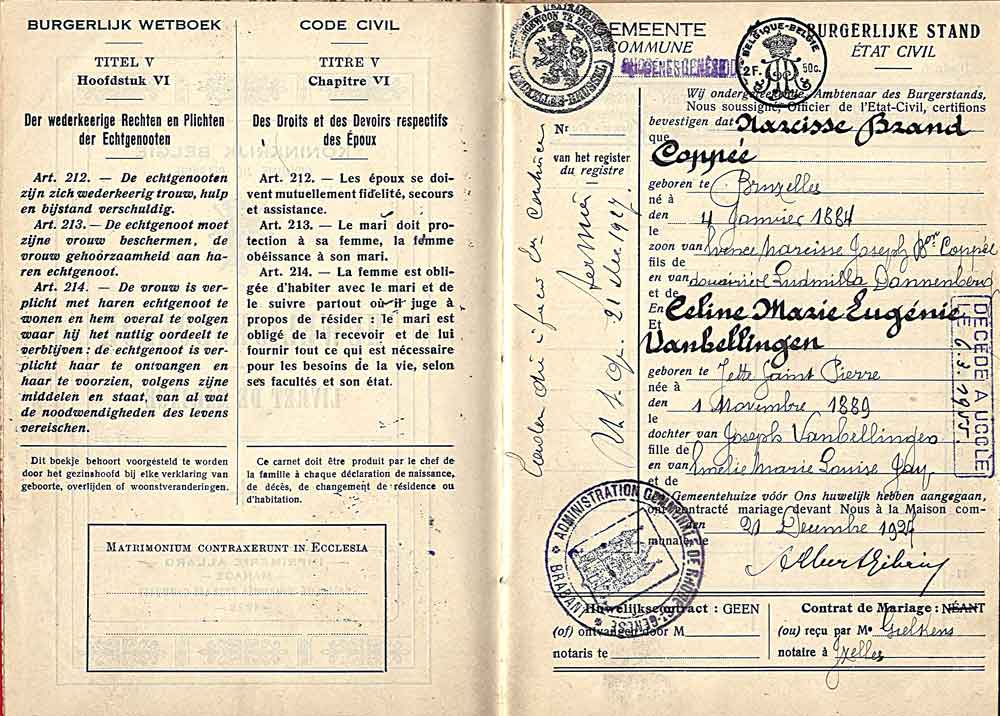 BURGERLIJK WETBOEK
TITEL V
Hoofdstuk VI
Der wederkeerige Rechten en Plichten
der Echtgenooten
Art. 212. — De echtgenooten
zijn zich wederkeerig trouw, hulp
en bijstand verschuldig.
Art. 213. — De echtgenoot moet
zijne vrouw beschermen, de
vrouw gehoorzaamheid aan ha-
ren echtgenoot.
Art. 214. — De vrouw is ver-
plicht met haren echtgenoot te
wonen en hem overal te volgen
waar hij het nuttig oordeelt te
verblijven : de echtgenoot is ver-
plicht haar te ontvangen en
haar te voorzien, volgens zijne
middelen en staat, van al wat
de noodwendigheden des levens
vereischen.
Dit boekje behoort voorgesteld te worden
door het gezinshoofd bij elke verklaring van
geboorte, overlijden of woonstveranderingen.
CODE CIVIL
TITRE V
Chapitre VI
Des Droits et des Devoirs respectifs
des Époux
Art. 212. — Les époux se doi-
vent mutuellement fidélité, secours
et assistance.
Art. 213. — Le mari doit pro-
tection à sa femme, la femme
obéissance à son mari.
Art. 214. — La femme est obli-
gée d'habiter avec le mari et de
le suivre partout où il juge à
propos de résider : le mari est
obligé de la recevoir et de lui
fournir tout ce qui est nécessaire
pour les besoins de la vie, selon
ses facultés et son état.
Ce carnet doit être produit par le chef de
la famille à chaque déclaration de naissance,
de décès, de changement de résidence ou
d'habitation.
MATRIMONIUM CONTRAXERUNT IN ECCLESIA
GEMEENTE
COMMUNE
BURGERLIJKE STAND
ÉTAT CIVIL
BELGIQUE-BELGIË
2F. 50c.
Nr
van het register
du registre
21 dec. 1927
Wij ondergeteekende, Ambtenaar des Burgerstands,
Nous soussigné, Officier de l'Etat-Civil, certifions
bevestigen dat Narcisse Brand
que
Coppée
geboren te Bruxelles
né à
den 4 Janvier 1884
le
zoon van Narcisse Joseph Bon Coppée
fils de
en van douairière Ludmilla Dannenberg
et de
En Celine Marie Eugénie
Et
Vanbellingen
geboren te Jette Saint Pierre
née à
den 1 Novembre 1889
le
dochter van Joseph Vanbellingen
fille de
en van Amélie Marie Louise Jay
et de
Gemeentehuize vóór Ons huwelijk hebben aangegaan,
ont contracté mariage devant Nous à la Maison com-
den 21 Decembre 1927
munale le
DÉCÉDÉ A UCCLE
LE 6.3.1955.
ADMINISTRATION COMMUNALE DE RHODE-ST-GENÈSE
BRABANT
Huwelijkscontract : GEEN
(of) ontvangen door M
notaris te
Contrat de Mariage : NÉANT
(ou) reçu par Me Gielkens
notaire à Ixelles